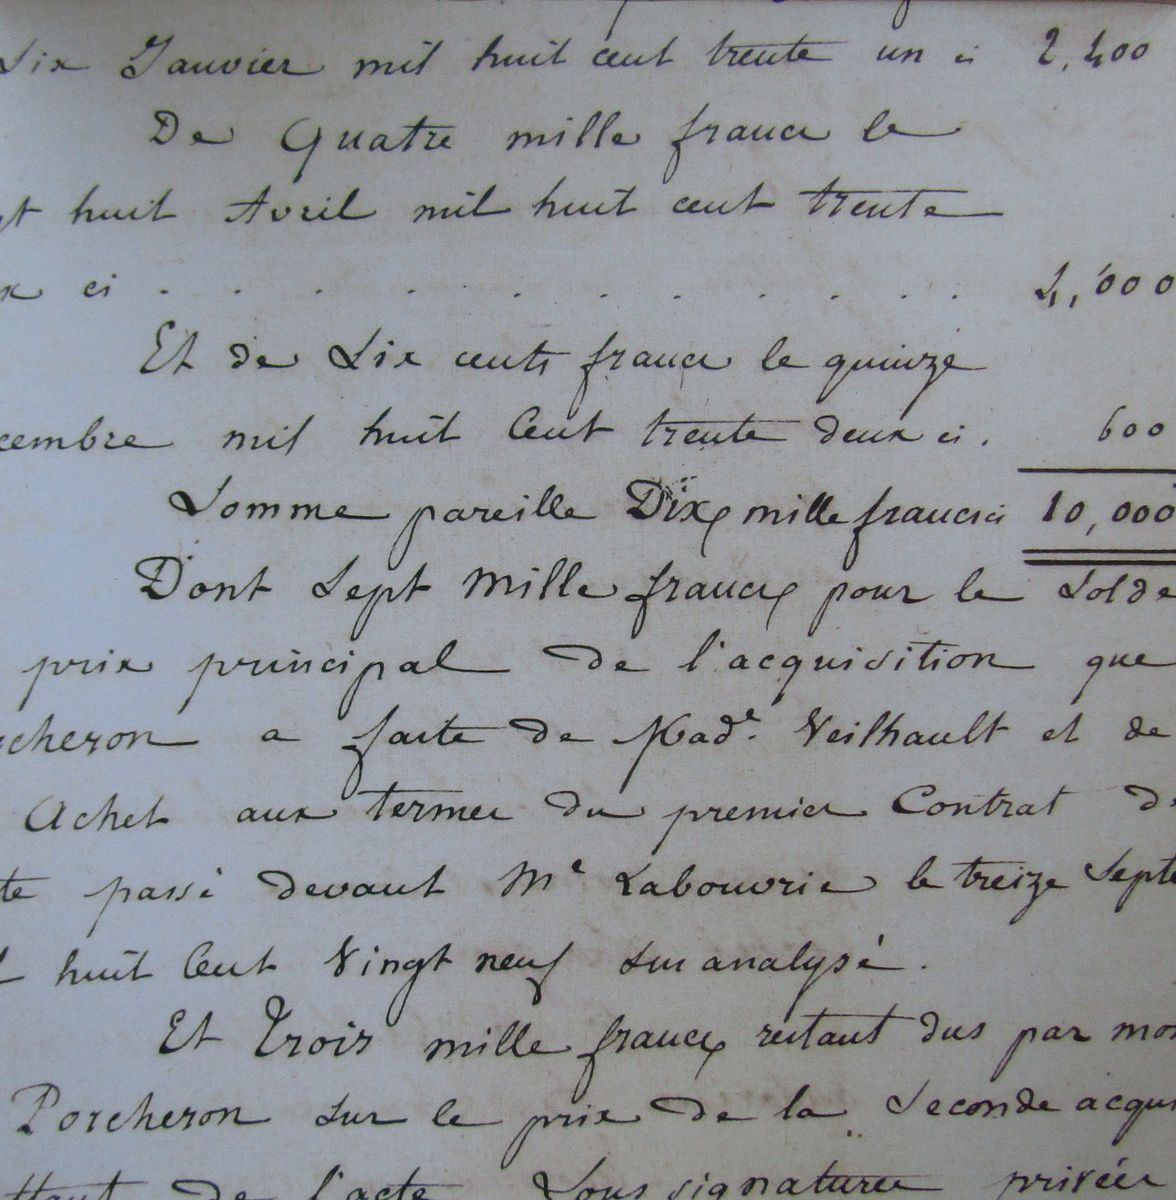 Six Janvier mil huit cent trente un ci 2,400
De Quatre mille francs le
gt huit Avril mil huit cent trente
x ci . . . . . . . . . . . 4,000
Et de Six cents francs le quinze
cembre mil huit Cent trente deux ci . 600
Somme pareille Dix mille francs ci 10,000
Dont Sept mille francs pour le Solde
prix principal de l'acquisition que
rcheron a faite de Made. Veilhault et de
Achet aux termes du premier Contrat d
te passé devant Me Labouvrie le treize Septe
l huit Cent Vingt neuf sus analysé.
Et Trois mille francs restant dus par mon
Porcheron sur le prix de la Seconde acquis
ltant de l'acte Sous signatures privées